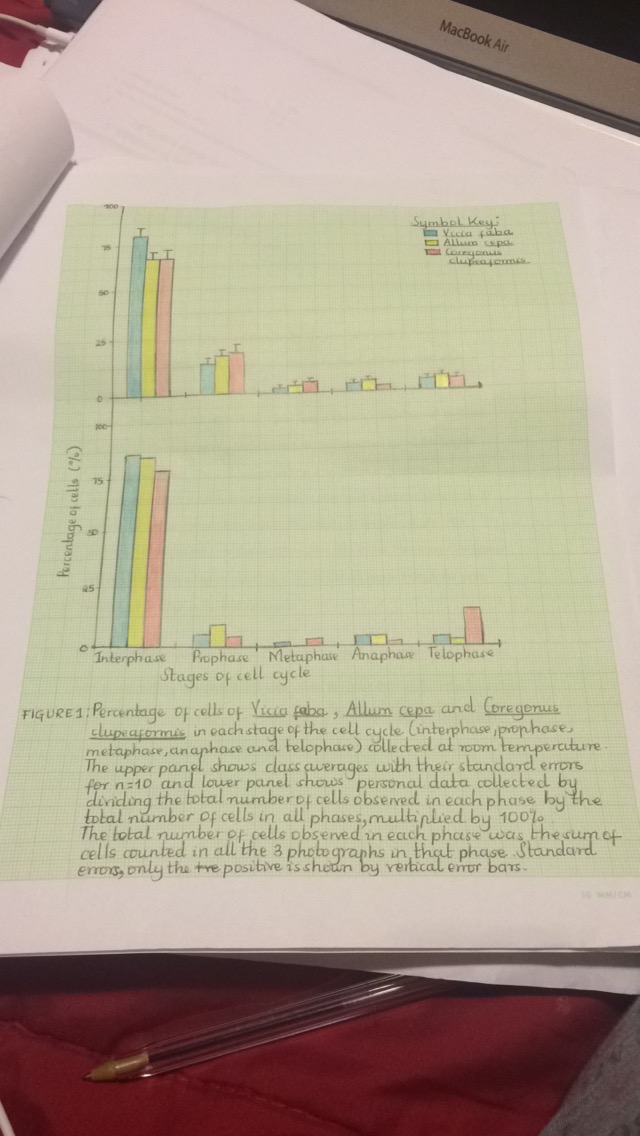 MacBook Air
Symbol Key:
Vicia faba
Allum cepa
Coregonus
clupeaformis
100
75
50
25
0
100
75
50
25
0
Percentage of cells (%)
Interphase Prophase Metaphase Anaphase Telophase
Stages of cell cycle
FIGURE 1: Percentage of cells of Vicia faba, Allum cepa and Coregonus
clupeaformis in each stage of the cell cycle (interphase, prophase,
metaphase, anaphase and telophase) collected at room temperature.
The upper panel shows class averages with their standard errors
for n=10 and lower panel shows personal data collected by
dividing the total number of cells observed in each phase by the
total number of cells in all phases, multiplied by 100%.
The total number of cells observed in each phase was the sum of
cells counted in all the 3 photographs in that phase. Standard
errors, only the +ve positive is shown by vertical error bars.